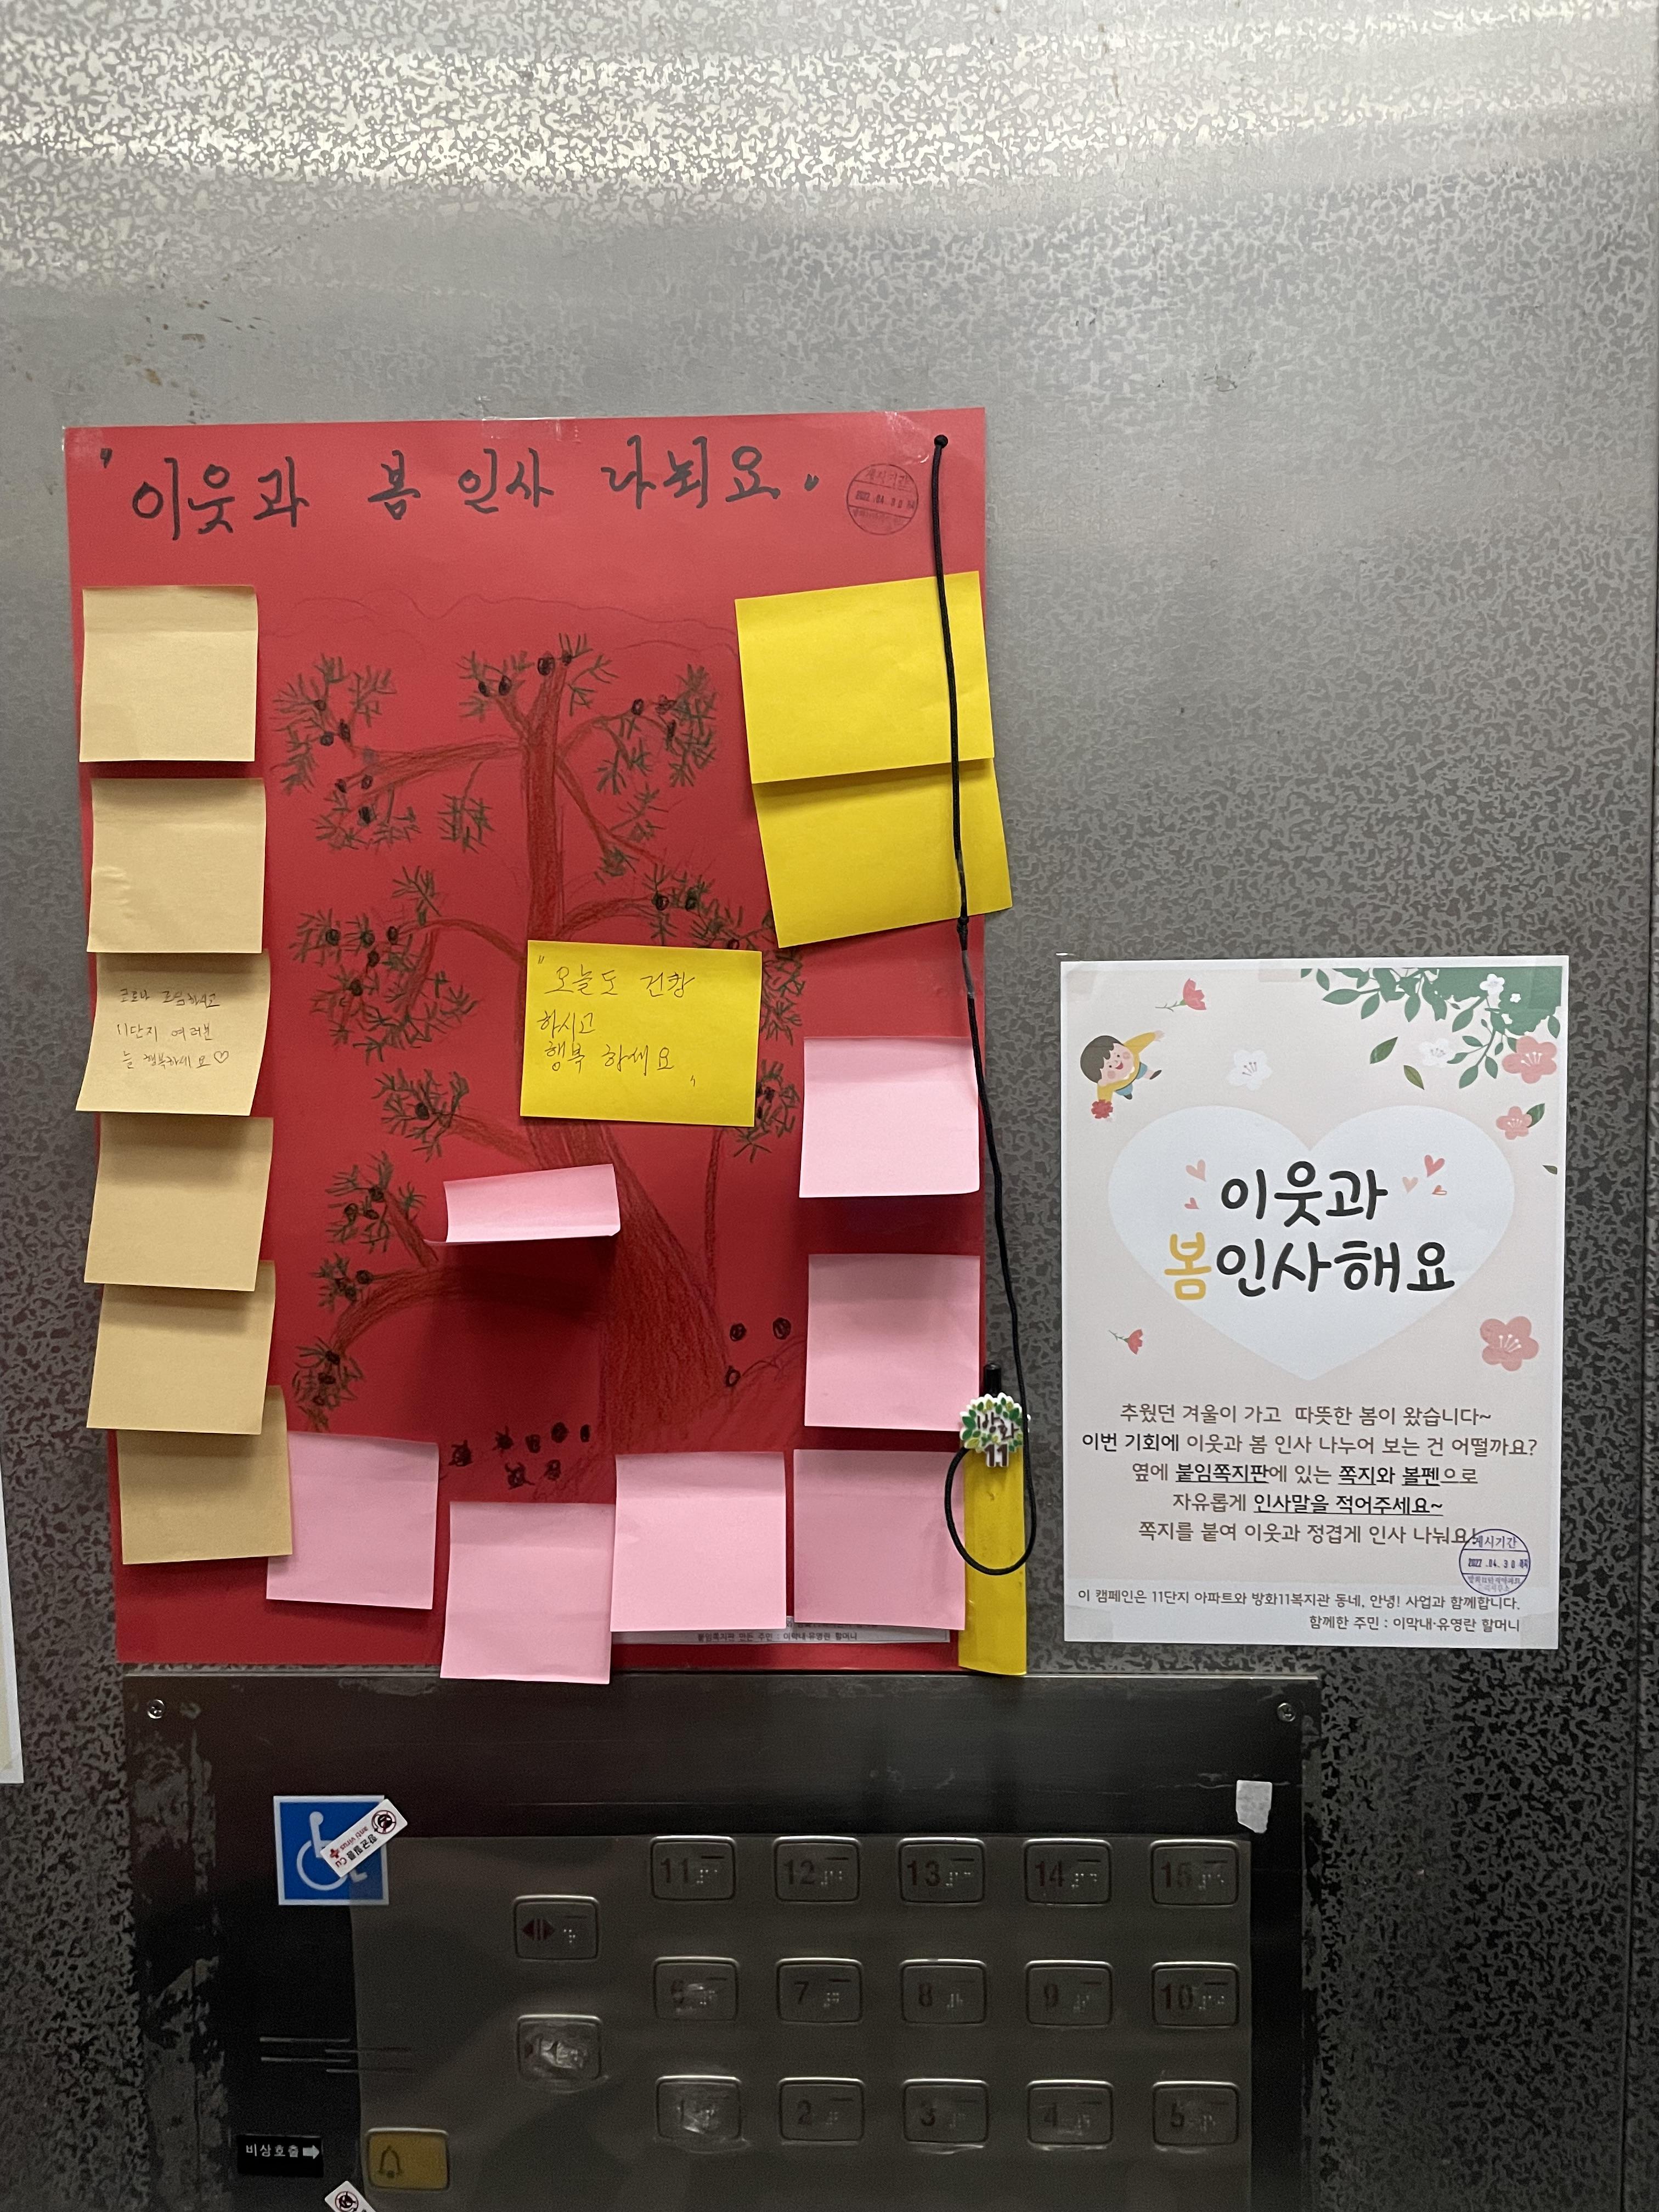 " 이웃과 봄 인사 나눠요. "
게시기간
2022 .04. 3 0 까지
코로나 조심하시고
11단지 여러분
늘 행복하세요♡
" 오늘도 건강
하시고
행복 하세요 "
방화
11
붙임쪽지판 만든 주민 : 이막내·유영란 할머니
이웃과
봄인사해요
추웠던 겨울이 가고 따뜻한 봄이 왔습니다~
이번 기회에 이웃과 봄 인사 나누어 보는 건 어떨까요?
옆에 붙임쪽지판에 있는 쪽지와 볼펜으로
자유롭게 인사말을 적어주세요~
쪽지를 붙여 이웃과 정겹게 인사 나눠요!
게시기간
2022 .04. 3 0 까지
이 캠페인은 11단지 아파트와 방화11복지관 동네, 안녕! 사업과 함께합니다.
함께한 주민 : 이막내·유영란 할머니
항균필름 Cu
anti virus
11 12 13 14 15
6 7 8 9 10
1 2 3 4 5
비상호출